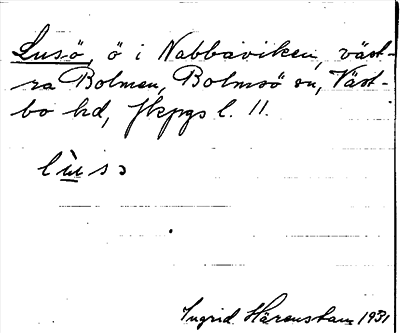 Lusö, ö i Nabbaviken, väst-
ra Bolmen, Bolmsö sn, Väst-
bo hd, Jkpgs l. 11.
lùsɔ
Ingrid Härenstam 1931